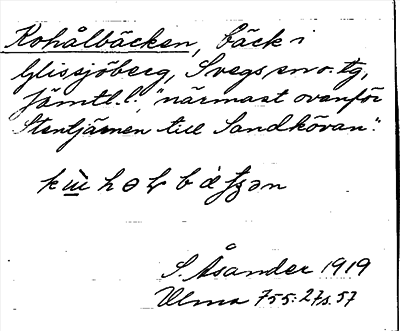 Kohålbäcken, bäck i
Glissjöberg, Svegs sn o. tg,
Jämtl. l., "närmast ovanför
Stentjärnen till Sandkövan".
S. Åsander 1919
Ulma 755: 27 s. 57